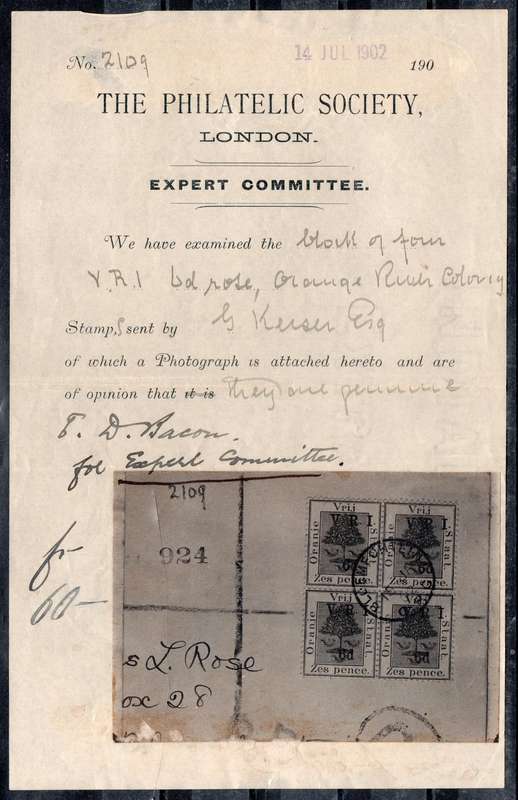 No. 2109 14 JUL 1902 190
THE PHILATELIC SOCIETY,
LONDON.
EXPERT COMMITTEE.
We have examined the block of four
V.R.I 6d rose, Orange River Colony
Stamp,s sent by G Keiser Esq
of which a Photograph is attached hereto and are
of opinion that it is they are genuine
E. D. Bacon.
for Expert Committee.
2109
924
60-
s L. Rose
ox 28
Vrij
Oranje
Staat.
V R I.
6d
Zes pence.
Vrij
Oranje
Staat.
V R I.
6d
Zes pence.
Oranje
Staat.
V R
6d
Zes pence.
Oranje
Staat.
V R I
6d
Zes pence.